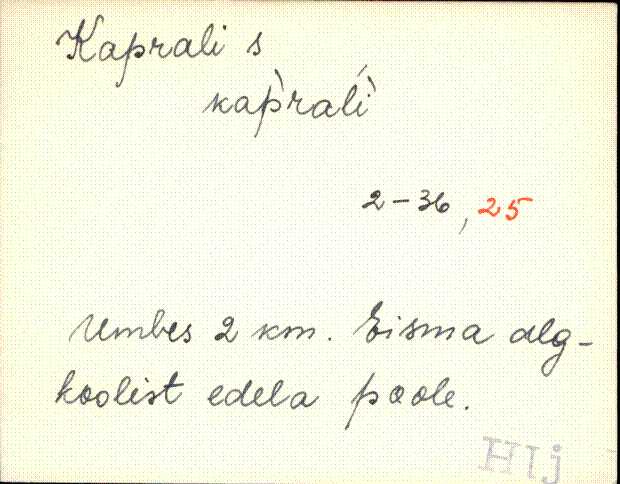 Kaprali s
kap̀rali̒̀
2-36, 25
Umbes 2 km. Eisma alg-
koolist edela poole.
Hlj